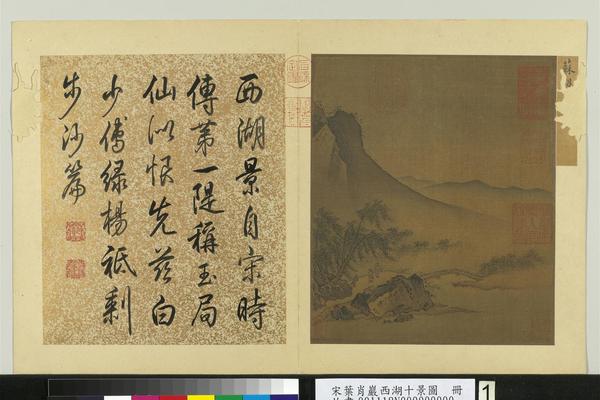 西湖景自宋時
傳第一隄稱玉局
仙似恨先茲白
少傅綠楊祗剩
步沙篇
蘇
宋葉肖巖西湖十景圖 冊
1